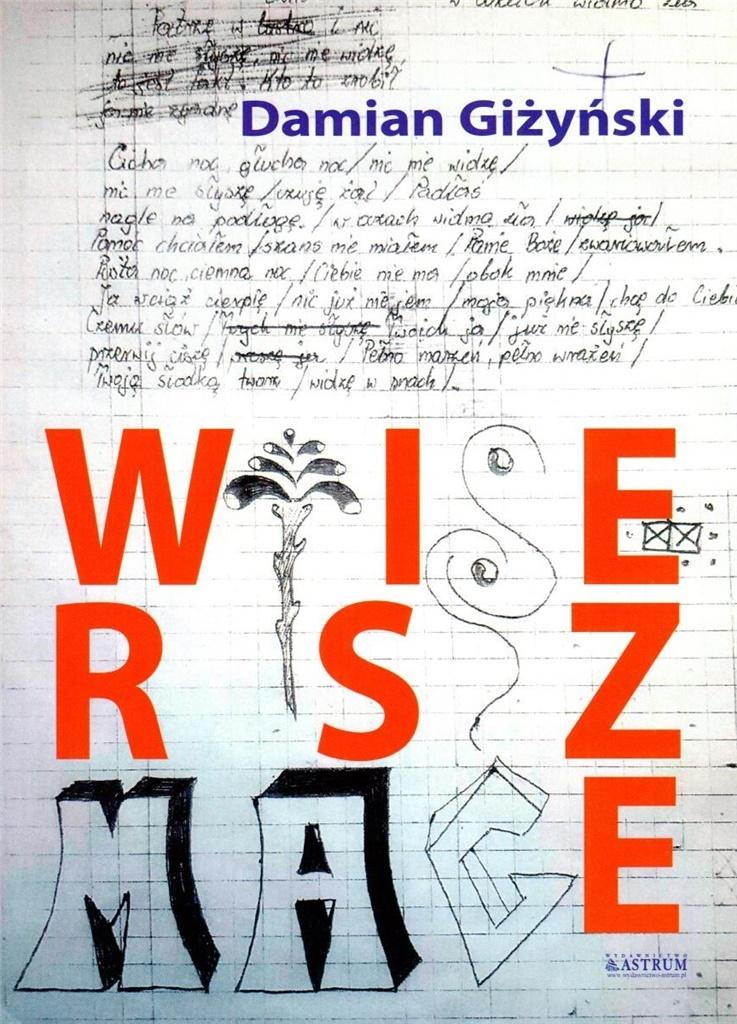 w oczach widmo zła
Patrzę w lustro i nic
nic nie słyszę, nic nie widzę,
to jest fakt. Kto to zrobił?
ja nie zgadnę
Damian Giżyński
Cicha noc, głucha noc / nic nie widzę /
nic nie słyszę / czuję żal / Padłaś
nagle na podłogę. / w oczach widma zła / widzę ja /
Pomóc chciałem / szans nie miałem / Panie Boże / zwariowałem.
Pusta noc, ciemna noc / Ciebie nie ma / obok mnie /
Ja wciąż cierpię / nic już nie jem / moja piękna / chcę do Ciebie
Czemu słów / Twych nie słyszę Twoich ja / już nie słyszę /
przerwij ciszę / proszę ja / Pełno marzeń, pełno wrażeń /
Twoją słodką twarz / widzę w snach /.
W I E
R S Z
E
MAG
WYDAWNICTWO
ASTRUM
www.wydawnictwo-astrum.pl